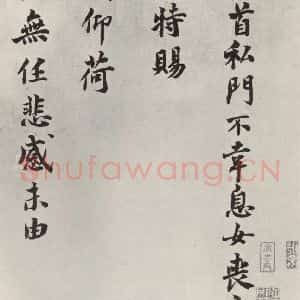 首私門不幸息女丧
特賜
仰荷
無任悲感未由
Shufawang.CN